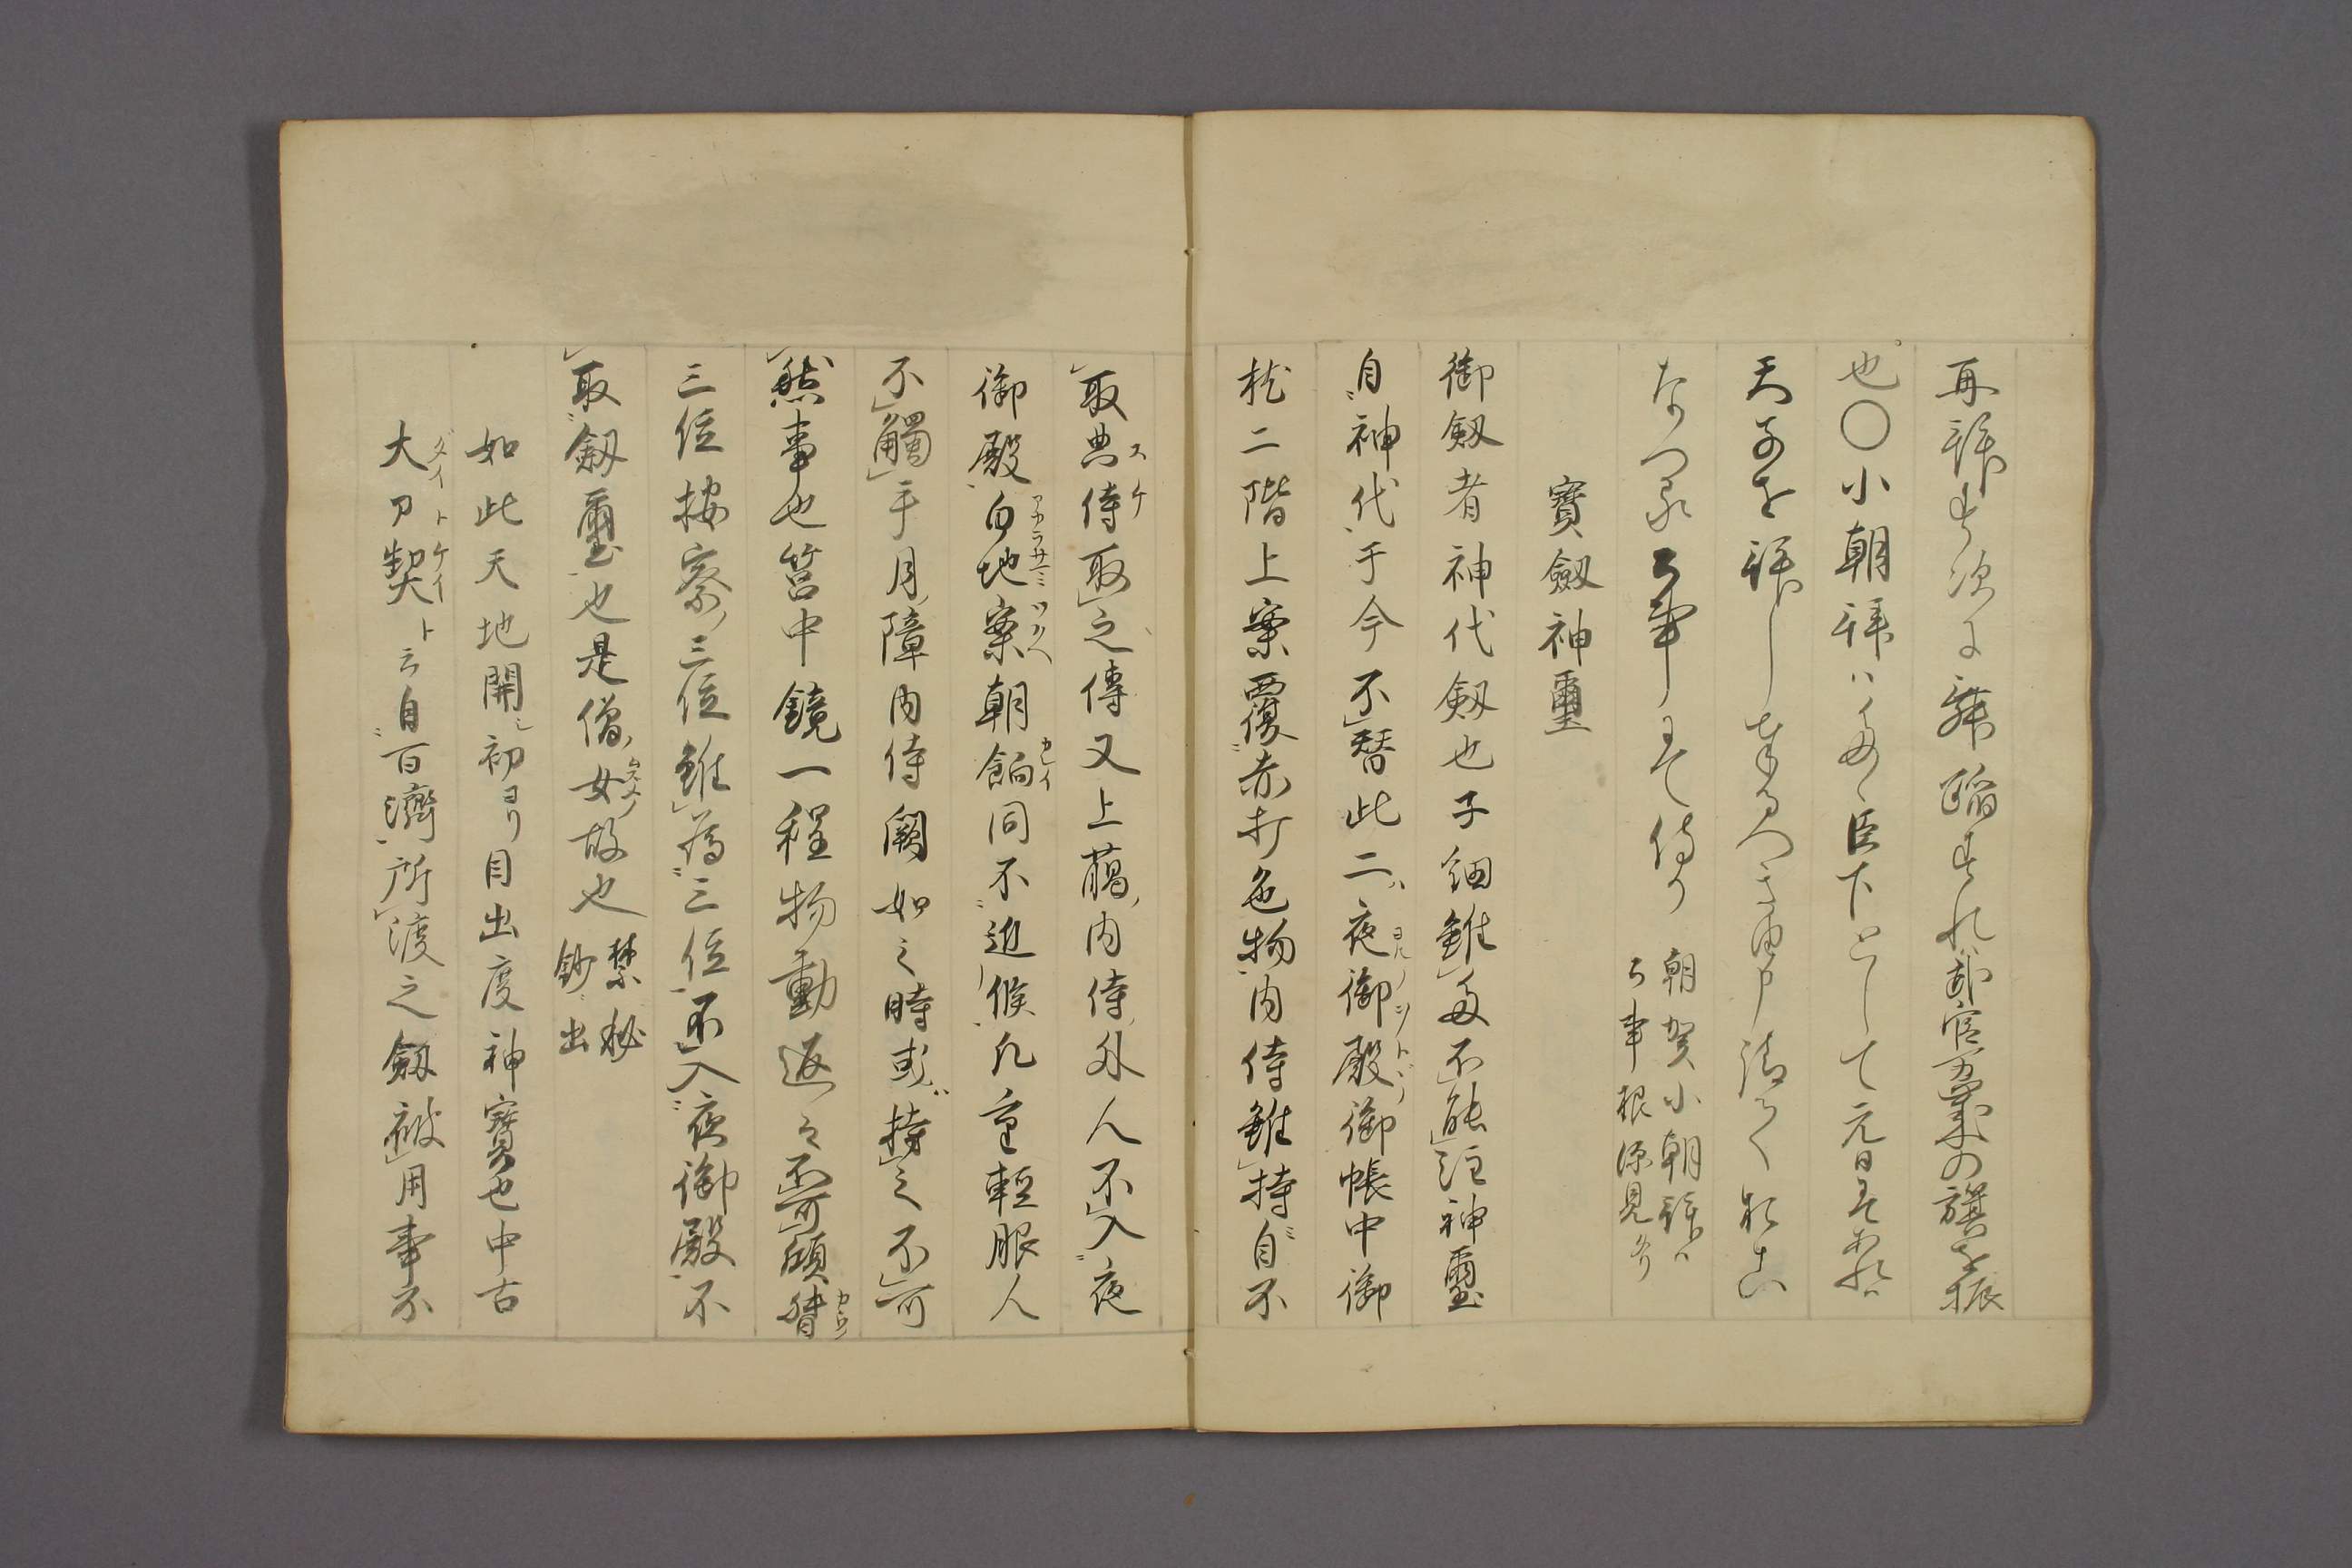 再拝す次に舞踏すれば武官萬歳の旗を振
也〇小朝拝ハ臣下として元日にハ
天子を拝し
公事にて侍り 朝賀小朝拝ハ
公事根源見タリ
寶劔神璽
御劔者神代劔也子細雖多不能注神璽
自神代于今不替此二ハ夜御殿御帳中御
枕二階上案覆赤打色物内侍雖持自不
取典侍取之傳又上﨟内侍外人不入夜
御殿白地案朝餉同不近候凡重軽服人
不觸手月障内侍闕如之時或持之不可
然事也筥中鏡一程物動返々不可傾替
三位按察三位雖為三位不入夜御殿不
取劔璽也是僧女故也 禁秘
鈔出
如此天地開初ヨリ目出度神寶也中古
大刀契ト云自百濟所渡之劔被用事不